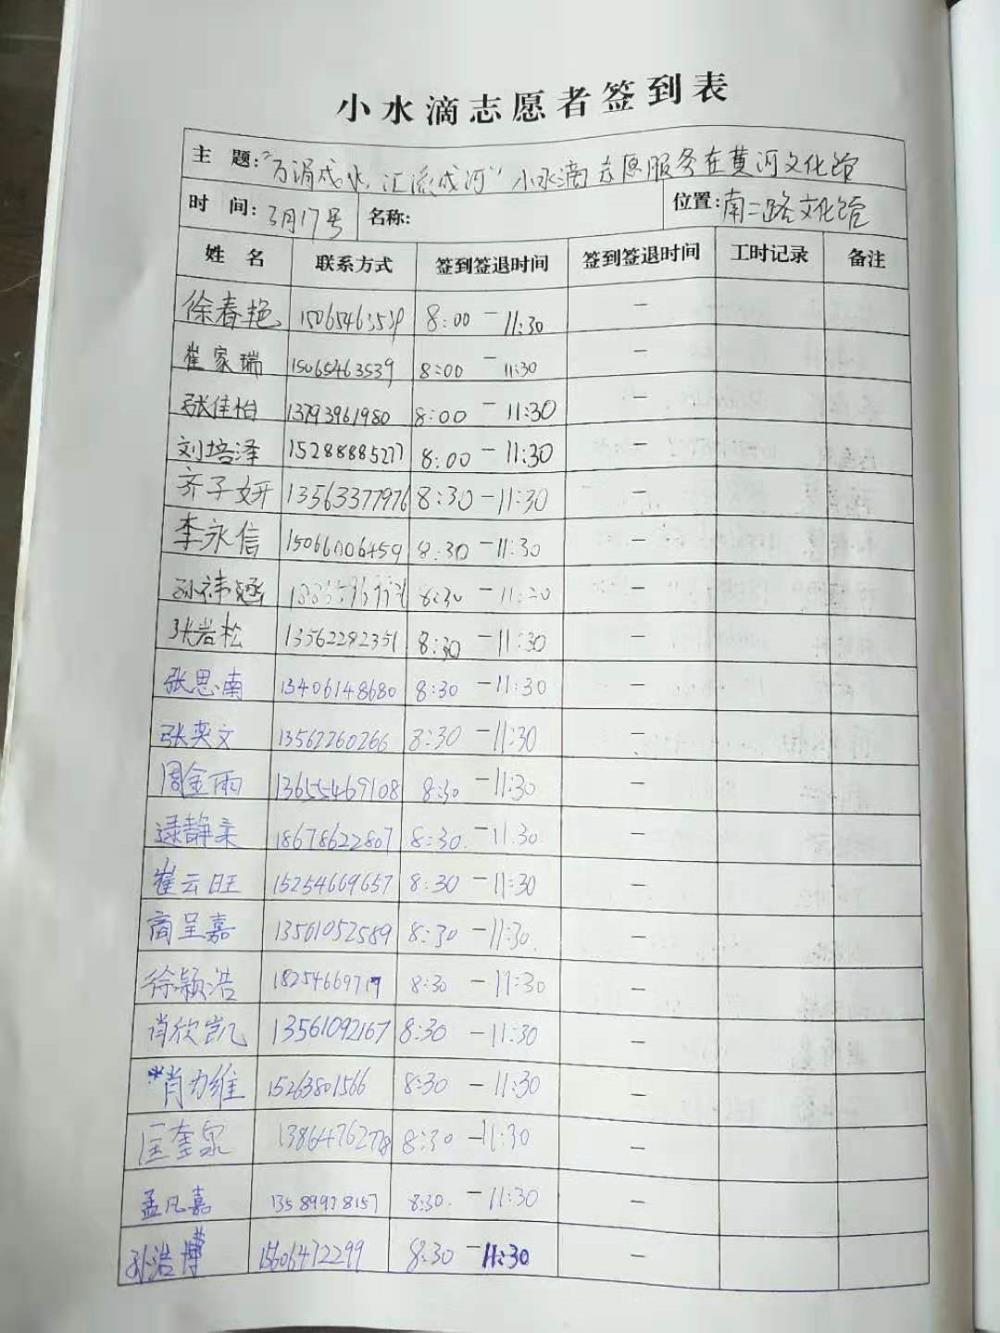 小水滴志愿者签到表
主 题：“百涓成水 汇流成河”小水滴志愿服务在黄河文化馆
时 间：3月17号 名称： 位置：南二路文化馆
姓 名 联系方式 签到签退时间 签到签退时间 工时记录 备注
徐春艳 15065463539 8:00 - 11:30 -
崔家瑞 15065463539 8:00 - 11:30 -
张佳怡 13793961980 8:00 - 11:30 -
刘培泽 15288885277 8:00 - 11:30 -
齐子妍 13563377976 8:30 - 11:30 -
李永信 15066006459 8:30 - 11:30 -
孙祎 8:30 - 11:20 -
张岩松 13562282351 8:30 - 11:30 -
张思南 13406148680 8:30 - 11:30 -
张奕文 13562260266 8:30 - 11:30 -
周金雨 13655469108 8:30 - 11:30 -
逯静柔 18678622807 8:30 - 11:30 -
崔云旺 15254669657 8:30 - 11:30 -
商呈嘉 13561052589 8:30 - 11:30 -
徐颖浩 18254669719 8:30 - 11:30 -
肖欣凯 13561092167 8:30 - 11:30 -
*肖力维 15263801566 8:30 - 11:30 -
匡奎泉 13864762778 8:30 - 11:30 -
孟凡嘉 13589978157 8:30 - 11:30 -
孙浩博 15606472299 8:30 - 11:30 -